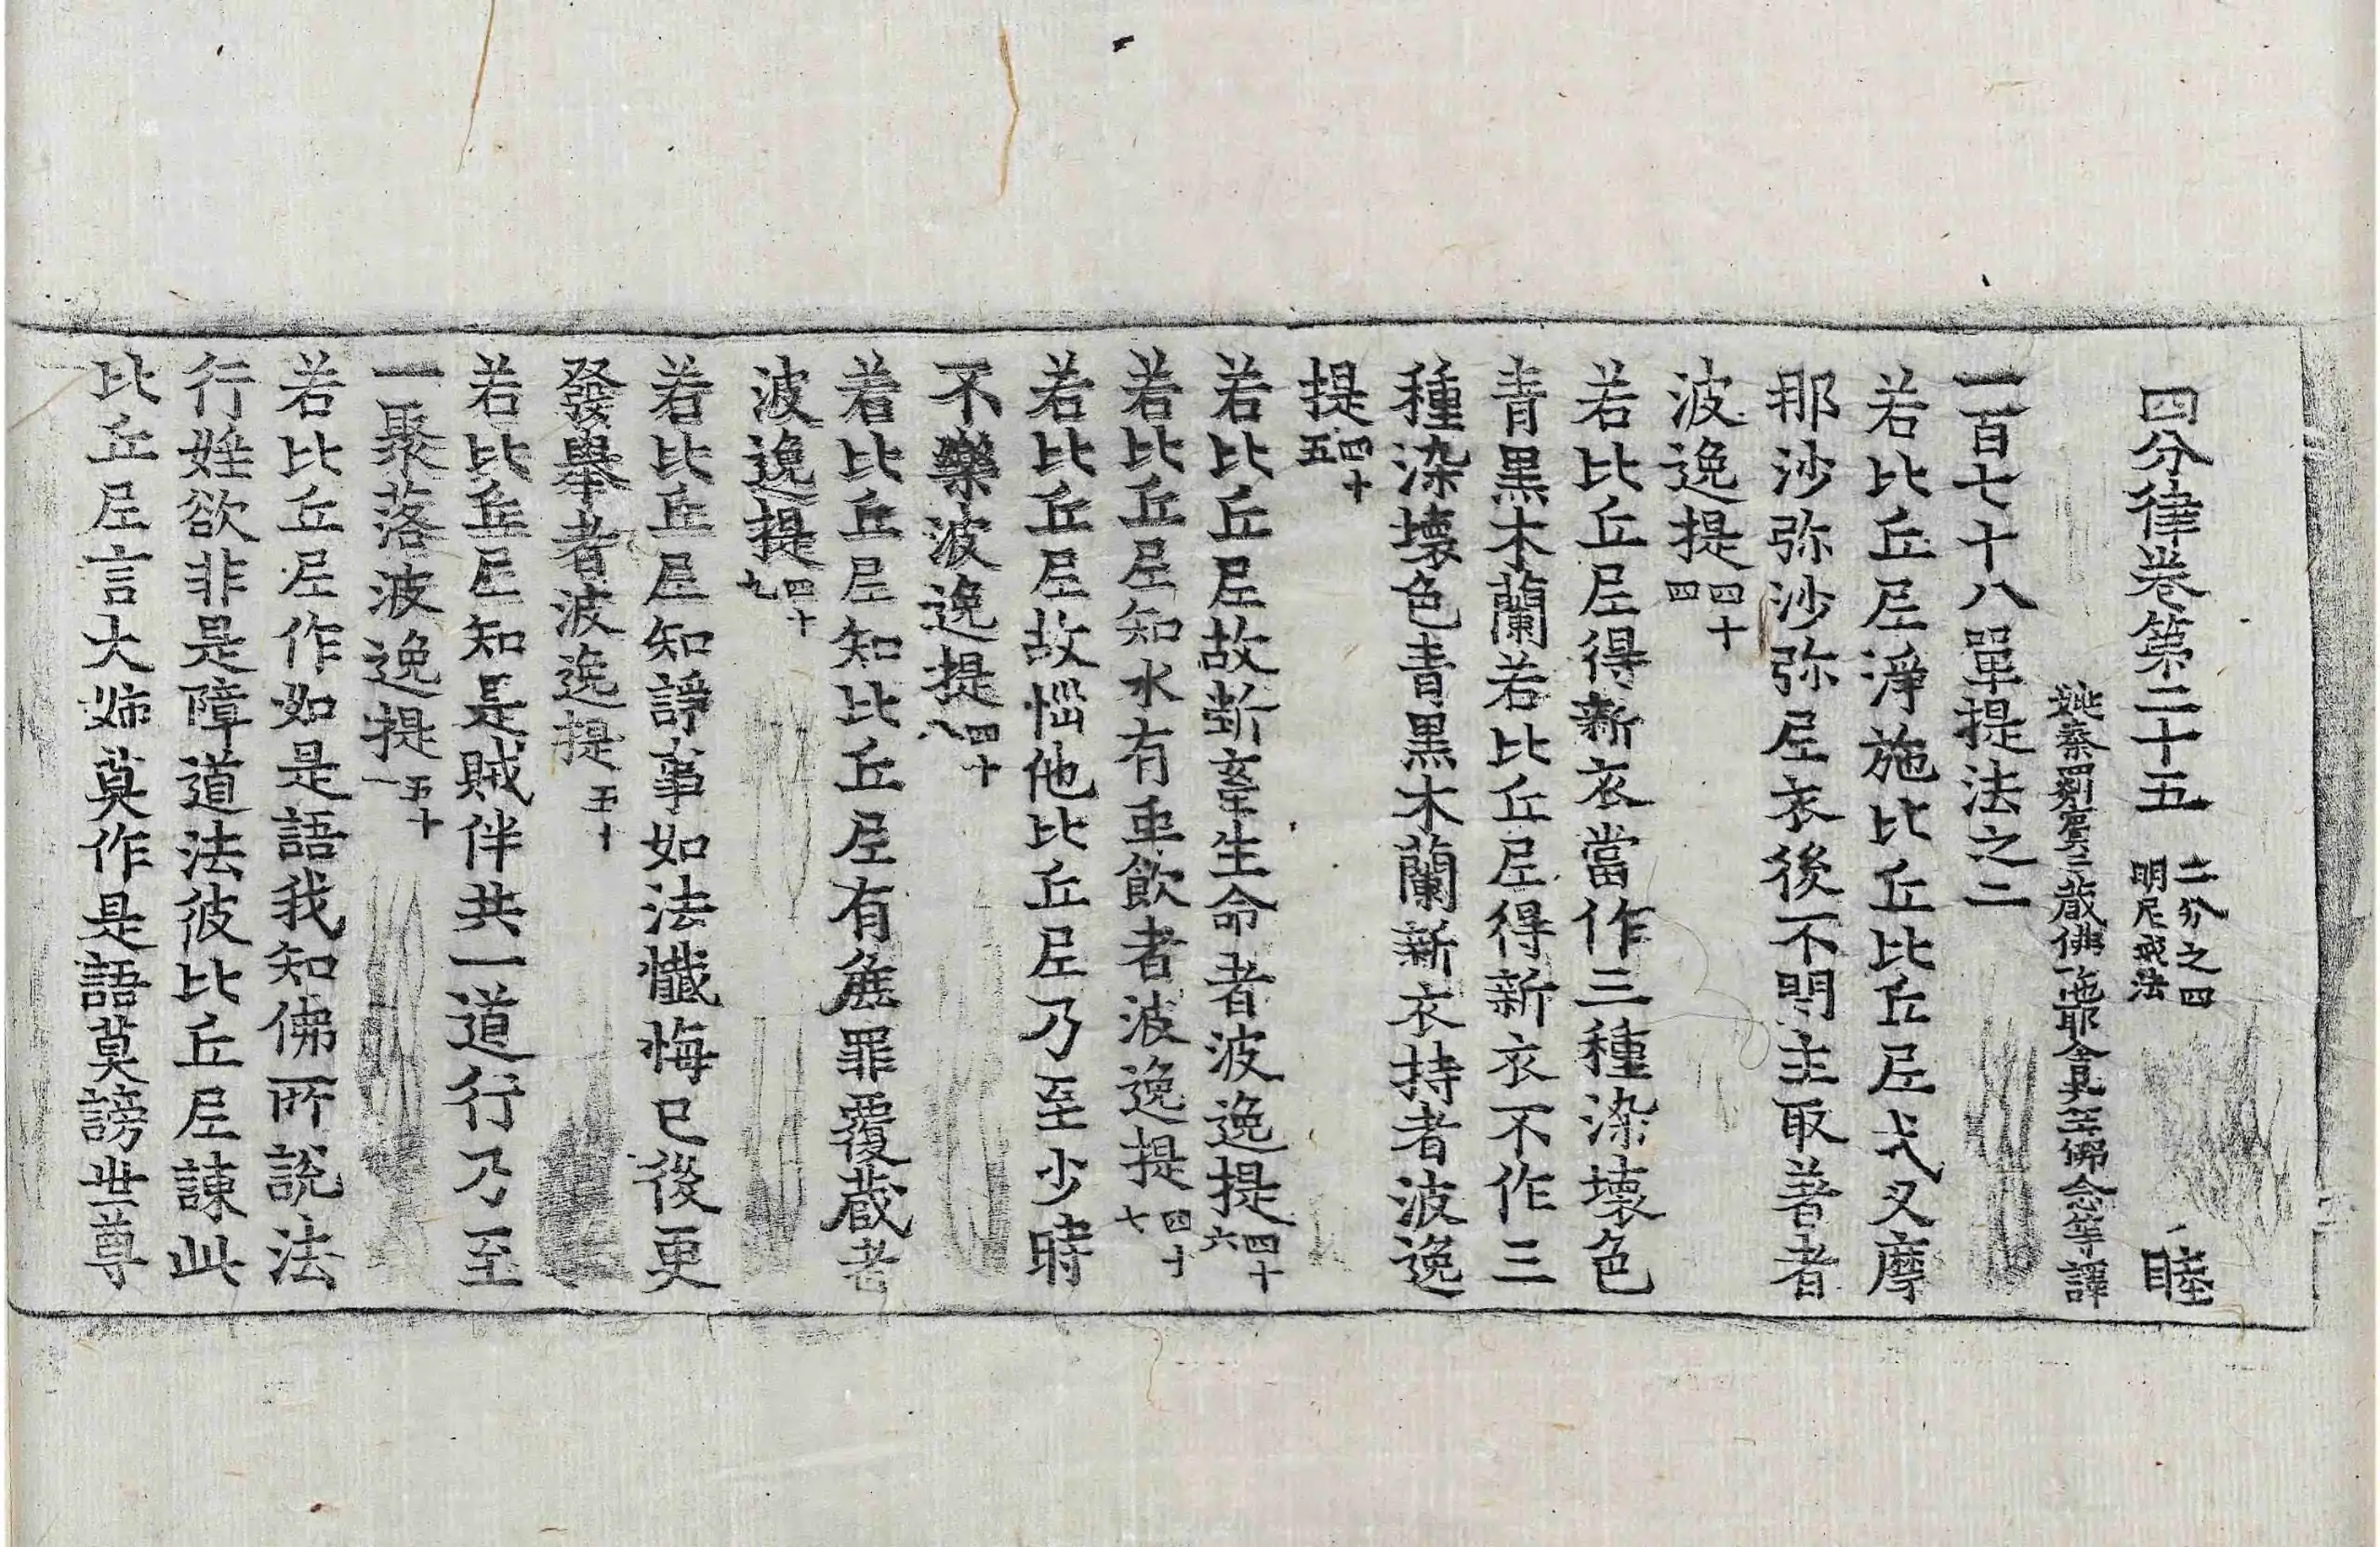 四分律卷第二十五 二分之四 明尼戒法 睦
姚秦罽賓三藏佛陁耶舍共竺佛念等譯
一百七十八單提法之二
若比丘尼淨施比丘比丘尼式叉摩
那沙弥沙弥尼衣後不問主取著者
波逸提 四十四
若比丘尼得新衣當作三種染壞色
青黑木蘭若比丘尼得新衣不作三
種染壞色青黑木蘭新衣持者波逸
提 四十五
若比丘尼故斷畜生命者波逸提 四十六
若比丘尼知水有虫飲者波逸提 四十七
若比丘尼故惱他比丘尼乃至少時
不樂波逸提 四十八
若比丘尼知比丘尼有麁罪覆藏者
波逸提 四十九
若比丘尼知諍事如法懺悔已後更
發舉者波逸提 五十
若比丘尼知是賊伴共一道行乃至
一聚落波逸提 五十一
若比丘尼作如是語我知佛所說法
行婬欲非是障道法彼比丘尼諫此
比丘尼言大姊莫作是語莫謗世尊